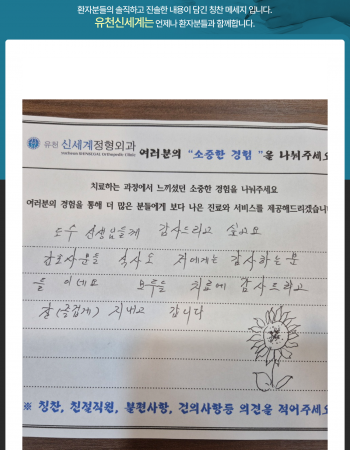 환자분들의 솔직하고 진솔한 내용이 담긴 칭찬 메세지 입니다.
유천신세계는 언제나 환자분들과 함께합니다.
유천 신세계정형외과
여러분의 "소중한 경험"을 나눠주세요
치료하는 과정에서 느끼셨던 소중한 경험을 나눠주세요
여러분의 경험을 통해 더 많은 분들에게 보다 나은 진료와 서비스를 제공해드리겠습니
도수 선생님들께 감사드리고 싶고요
간호사분들 식사도 저에게는 감사하는 분
들 이네요 모두들 치료에 감사드리고
잘(즐겁게) 지내고 갑니다
※ 칭찬, 친절직원, 불편사항, 건의사항등 의견을 적어주세요